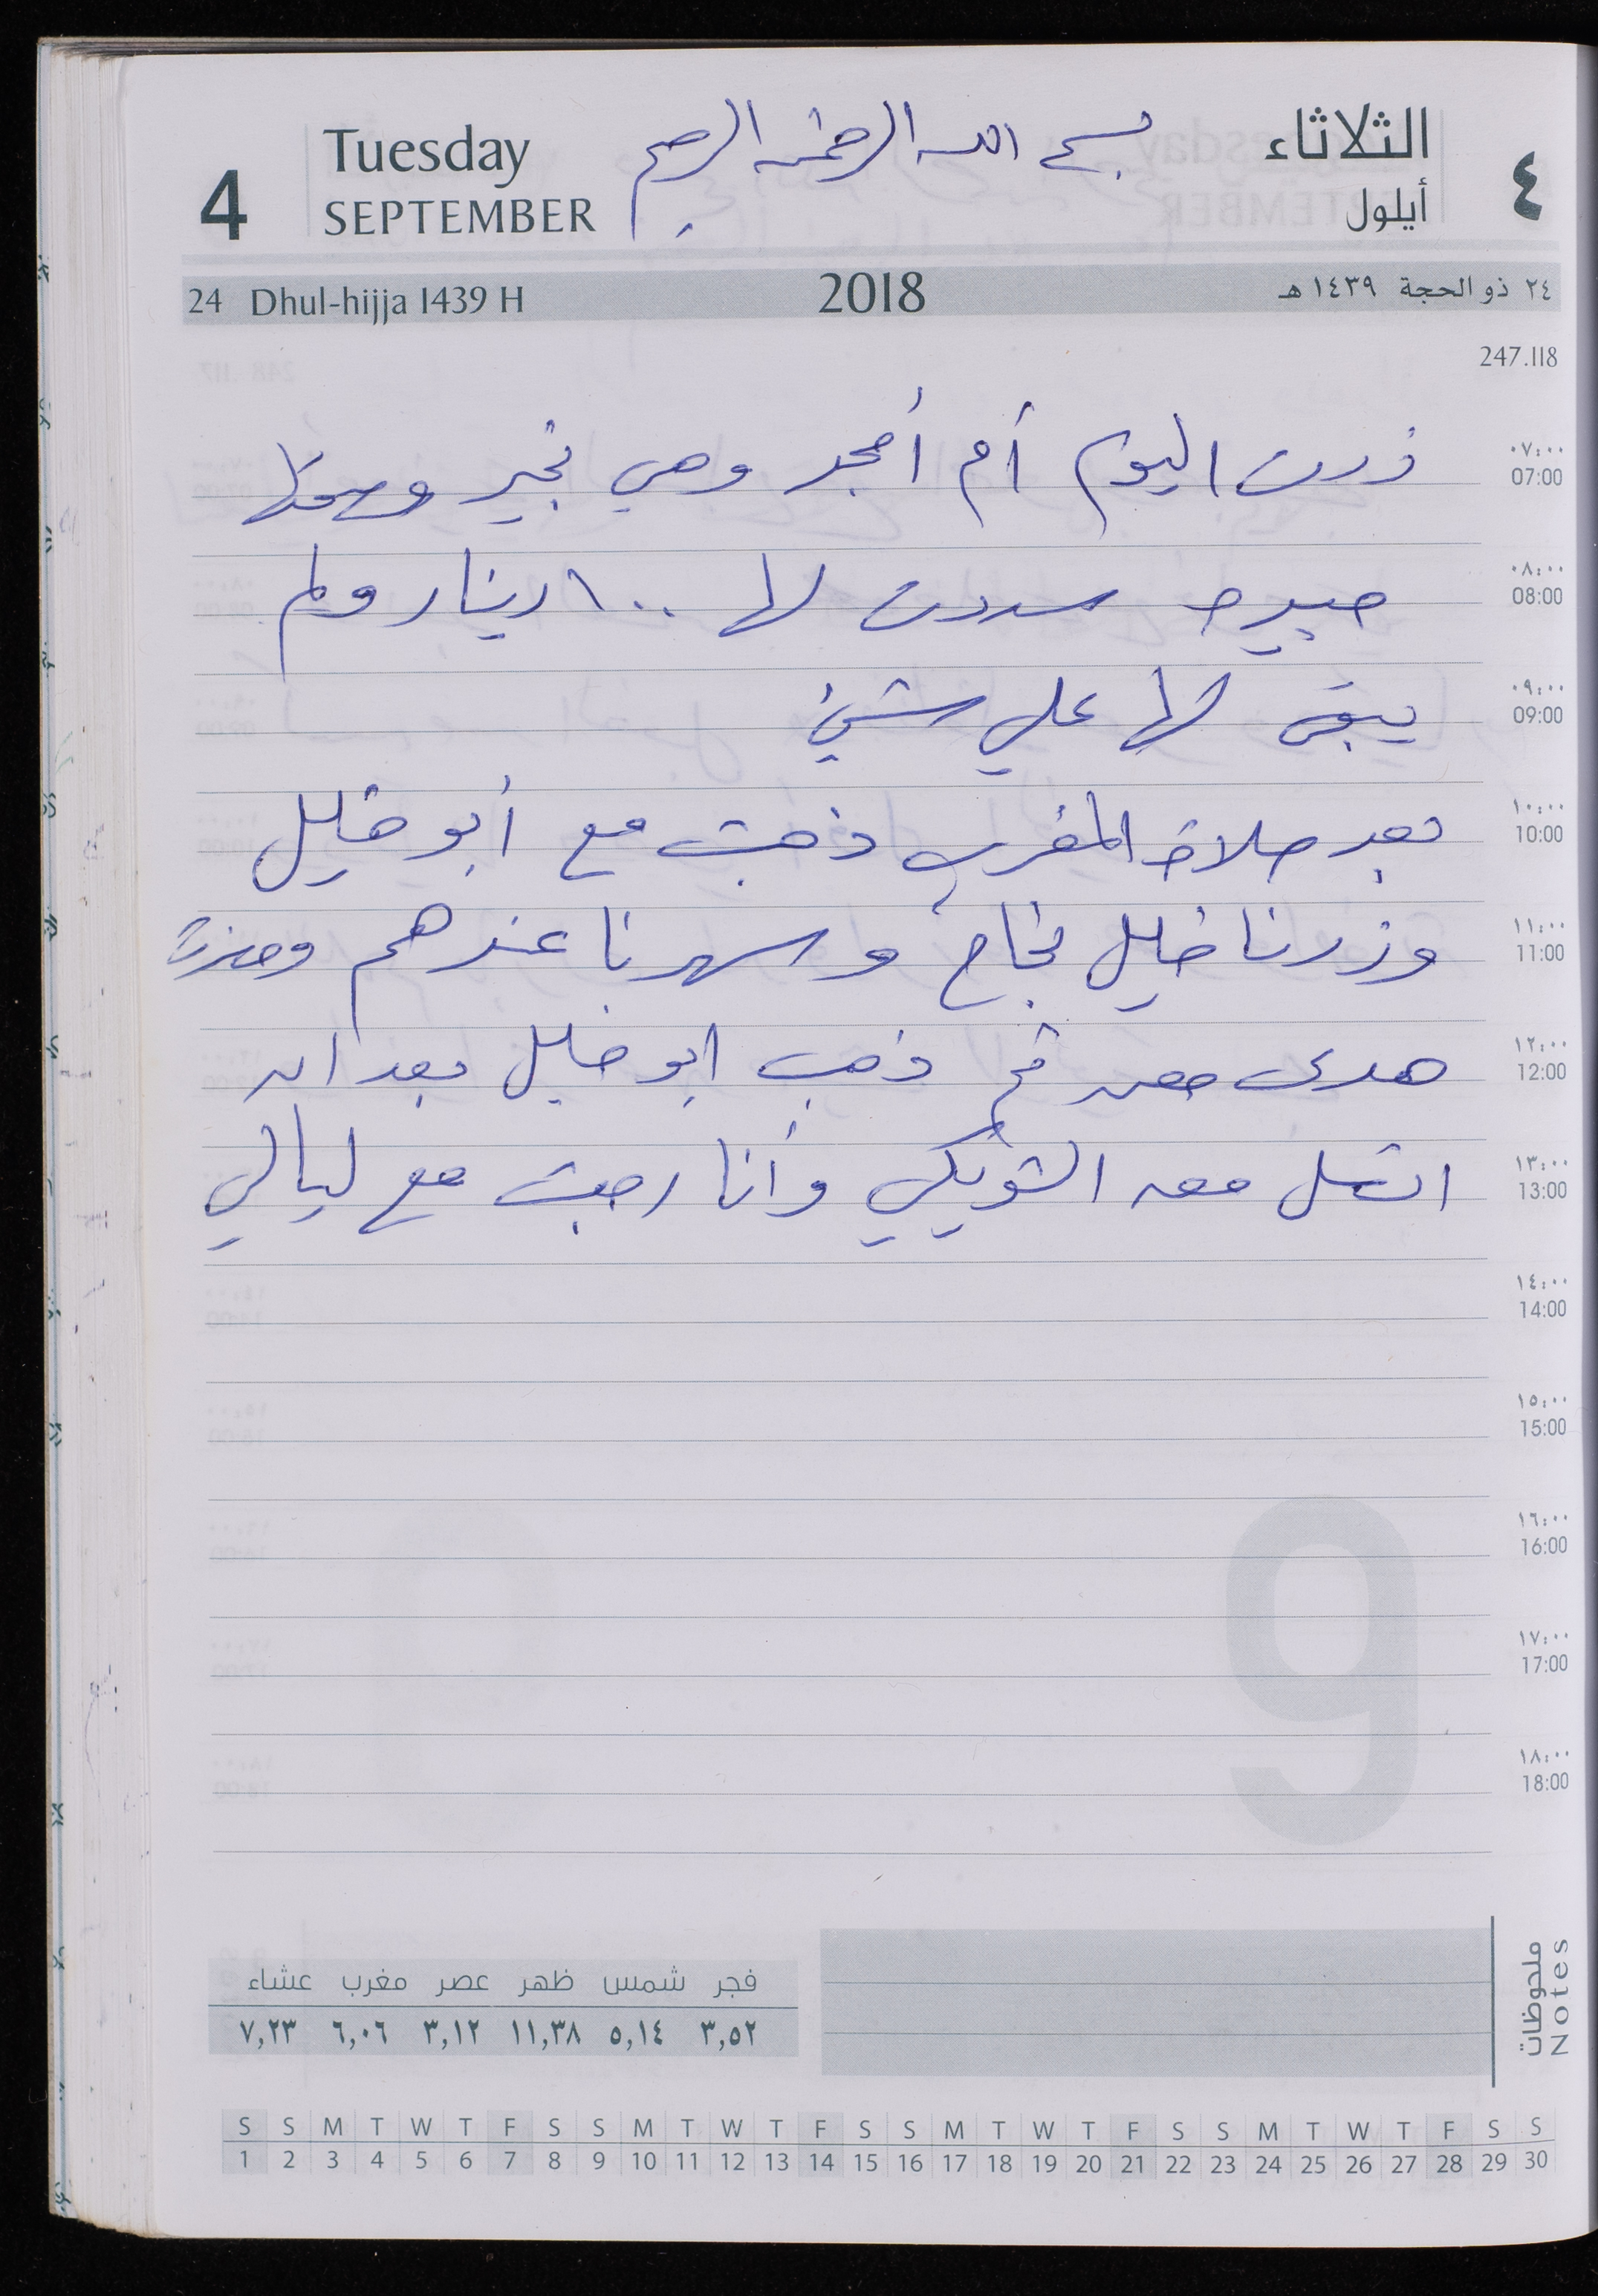 Tuesday بسم الله الرحمن الرحيم الثلاثاء
4 SEPTEMBER أيلول ٤
24 Dhul-hijja 1439 H 2018 ٢٤ ذو الحجة ١٤٣٩ هـ
247.118
٠٧:٠٠
07:00 زرت اليوم أم أمجد وهي بخير وصحتها
٠٨:٠٠
08:00 جيدة سددت لها ١٠٠ دينار ولم
٠٩:٠٠
09:00 يبقى لها علي شيء
١٠:٠٠
10:00 بعد صلاة المغرب ذهبت مع أبو خليل
١١:٠٠
11:00 وزرنا خليل نجاح وسهرنا عندهم
١٢:٠٠
12:00 هدى معه ثم ذهب ابو خليل بعد ان
١٣:٠٠
13:00 اتصل معه الشويكي وأنا رجعت مع ليالي
١٤:٠٠
14:00
١٥:٠٠
15:00
١٦:٠٠
16:00
١٧:٠٠
17:00
١٨:٠٠
18:00
9
ملحوظات
Notes
فجر شمس ظهر عصر مغرب عشاء
٣,٥٢ ٥,١٤ ١١,٣٨ ٣,١٢ ٦,٠٦ ٧,٢٣
S S M T W T F S S M T W T F S S M T W T F S S M T W T F S S
1 2 3 4 5 6 7 8 9 10 11 12 13 14 15 16 17 18 19 20 21 22 23 24 25 26 27 28 29 30